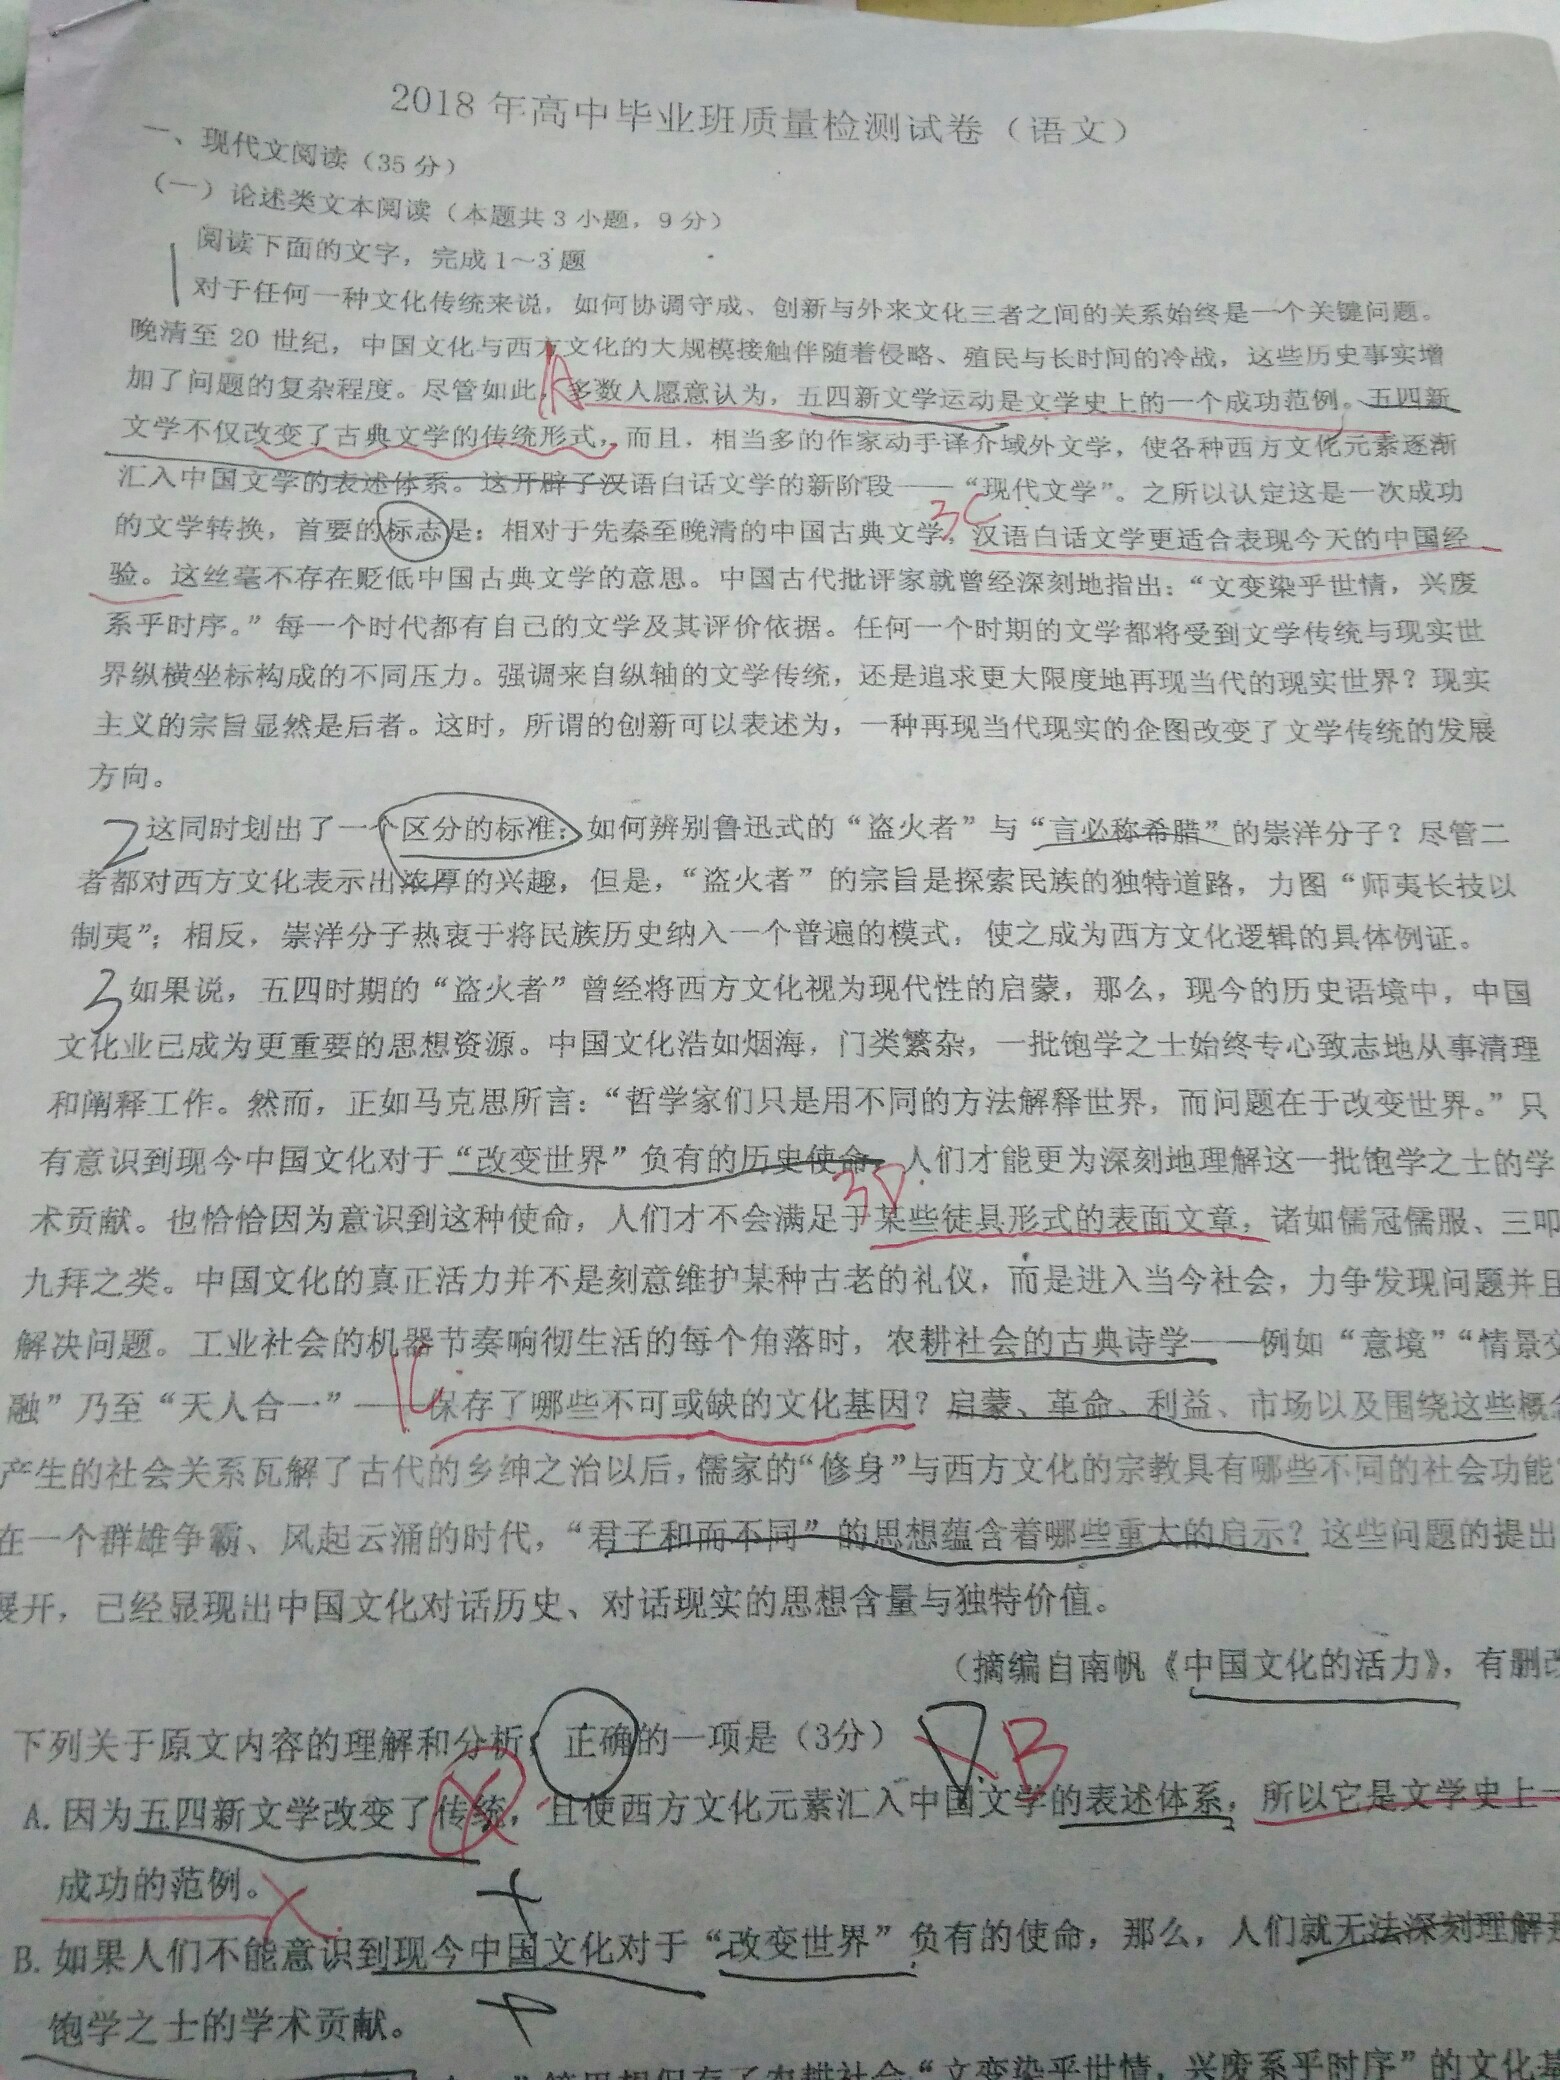 2018 年高中毕业班质量检测试卷（语文）
一、现代文阅读（35 分）
（一）论述类文本阅读（本题共 3 小题，9 分）
阅读下面的文字，完成 1～3 题
对于任何一种文化传统来说，如何协调守成、创新与外来文化三者之间的关系始终是一个关键问题。
晚清至 20 世纪，中国文化与西方文化的大规模接触伴随着侵略、殖民与长时间的冷战，这些历史事实增
加了问题的复杂程度。尽管如此，多数人愿意认为，五四新文学运动是文学史上的一个成功范例。五四新
A
文学不仅改变了古典文学的传统形式，而且，相当多的作家动手译介域外文学，使各种西方文化元素逐渐
汇入中国文学的表述体系。这开辟了汉语白话文学的新阶段——“现代文学”。之所以认定这是一次成功
的文学转换，首要的标志是：相对于先秦至晚清的中国古典文学，汉语白话文学更适合表现今天的中国经
3C
验。这丝毫不存在贬低中国古典文学的意思。中国古代批评家就曾经深刻地指出：“文变染乎世情，兴废
系乎时序。”每一个时代都有自己的文学及其评价依据。任何一个时期的文学都将受到文学传统与现实世
界纵横坐标构成的不同压力。强调来自纵轴的文学传统，还是追求更大限度地再现当代的现实世界？现实
主义的宗旨显然是后者。这时，所谓的创新可以表述为，一种再现当代现实的企图改变了文学传统的发展
方向。
2 这同时划出了一个区分的标准：如何辨别鲁迅式的“盗火者”与“言必称希腊”的崇洋分子？尽管二
者都对西方文化表示出浓厚的兴趣，但是，“盗火者”的宗旨是探索民族的独特道路，力图“师夷长技以
制夷”；相反，崇洋分子热衷于将民族历史纳入一个普遍的模式，使之成为西方文化逻辑的具体例证。
3 如果说，五四时期的“盗火者”曾经将西方文化视为现代性的启蒙，那么，现今的历史语境中，中国
文化业已成为更重要的思想资源。中国文化浩如烟海，门类繁杂，一批饱学之士始终专心致志地从事清理
和阐释工作。然而，正如马克思所言：“哲学家们只是用不同的方法解释世界，而问题在于改变世界。”只
有意识到现今中国文化对于“改变世界”负有的历史使命，人们才能更为深刻地理解这一批饱学之士的学
3D
术贡献。也恰恰因为意识到这种使命，人们才不会满足于某些徒具形式的表面文章，诸如儒冠儒服、三叩
九拜之类。中国文化的真正活力并不是刻意维护某种古老的礼仪，而是进入当今社会，力争发现问题并且
解决问题。工业社会的机器节奏响彻生活的每个角落时，农耕社会的古典诗学——例如“意境”“情景交
1C
融”乃至“天人合一”——保存了哪些不可或缺的文化基因？启蒙、革命、利益、市场以及围绕这些概念
产生的社会关系瓦解了古代的乡绅之治以后，儒家的“修身”与西方文化的宗教具有哪些不同的社会功能？
在一个群雄争霸、风起云涌的时代，“君子和而不同”的思想蕴含着哪些重大的启示？这些问题的提出
展开，已经显现出中国文化对话历史、对话现实的思想含量与独特价值。
（摘编自南帆《中国文化的活力》，有删改
下列关于原文内容的理解和分析，正确的一项是（3分）
D B
A. 因为五四新文学改变了传统，且使西方文化元素汇入中国文学的表述体系，所以它是文学史上一
成功的范例。
B. 如果人们不能意识到现今中国文化对于“改变世界”负有的使命，那么，人们就无法深刻理解
饱学之士的学术贡献。
等思想保存了农耕社会“文变染乎世情，兴废系乎时序”的文化基